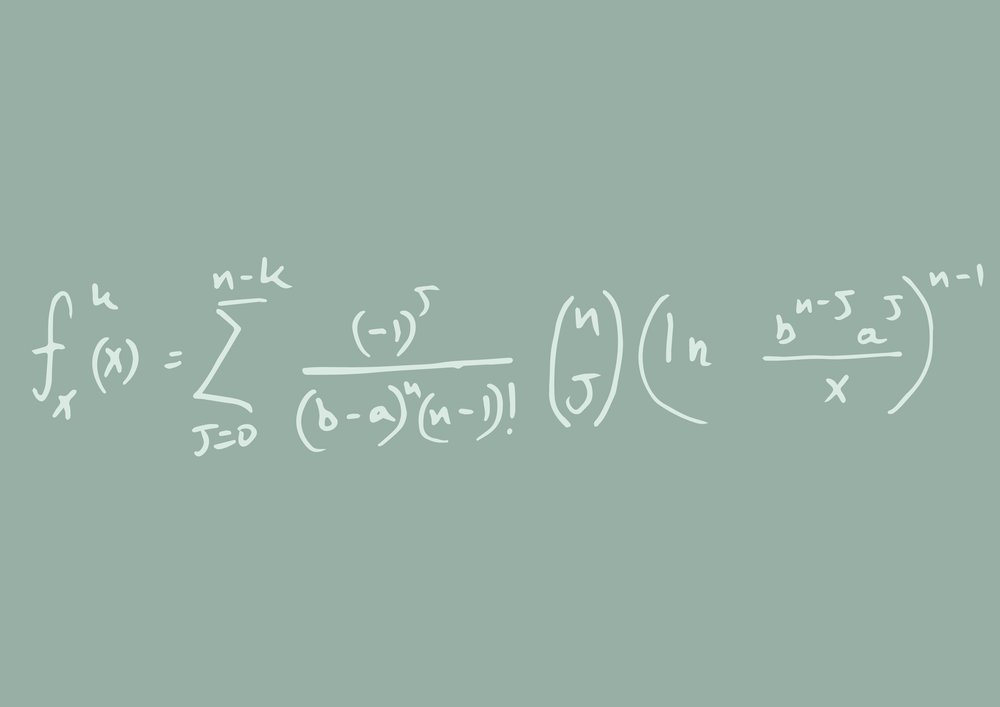 f_x^k (x) = \sum_{J=0}^{n-k} \frac{(-1)^J}{(b-a)^n (n-1)!} \binom{n}{J} \left( \ln \frac{b^{n-J} a^J}{x} \right)^{n-1}